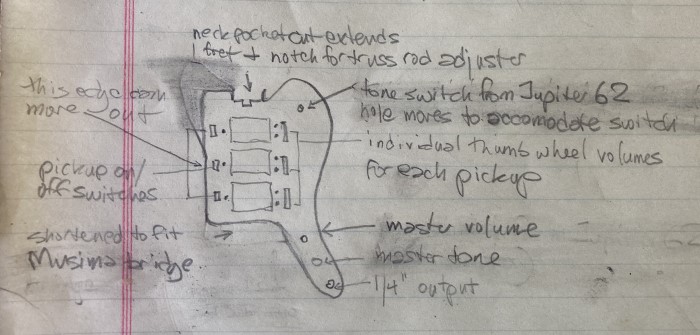 neck pocket cut extends
1 fret + notch for truss rod adjuster
this edge
more out
tone switch from Jupiter 62
hole moves to accomodate switch
individual thumb wheel volumes
for each pickup
pickup on/
off switches
shortened to fit
Musima bridge
master volume
master tone
1/4" output